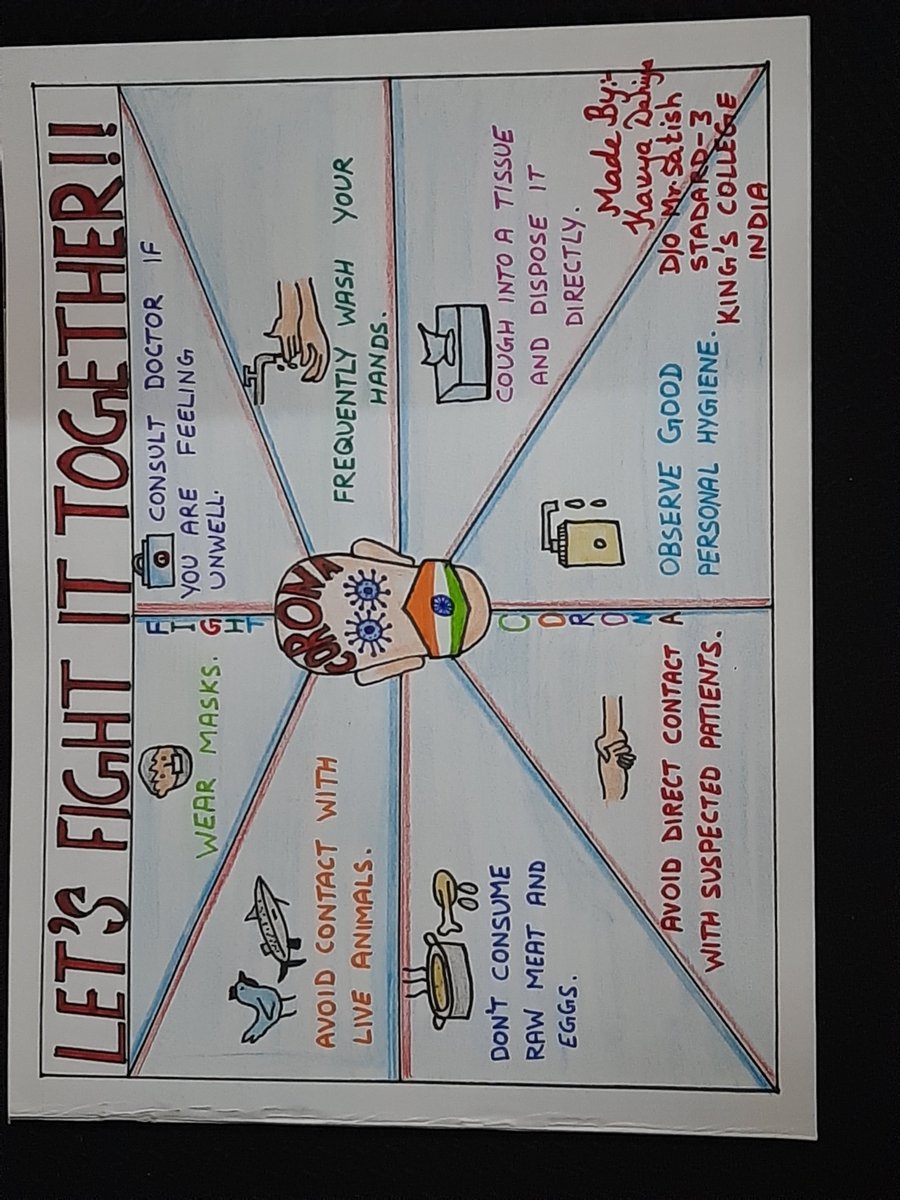 LET'S FIGHT IT TOGETHER!!
WEAR MASKS.
FIGHT
CONSULT DOCTOR IF
YOU ARE FEELING
UNWELL.
AVOID CONTACT WITH
LIVE ANIMALS.
CORONA
FREQUENTLY WASH YOUR
HANDS.
DON'T CONSUME
RAW MEAT AND
EGGS.
COUGH INTO A TISSUE
AND DISPOSE IT
DIRECTLY.
CORONA
AVOID DIRECT CONTACT
WITH SUSPECTED PATIENTS.
OBSERVE GOOD
PERSONAL HYGIENE.
Made By:-
Kavya Dahiya
D/O Mr. Satish
STADARD-3
KING'S COLLEGE
INDIA